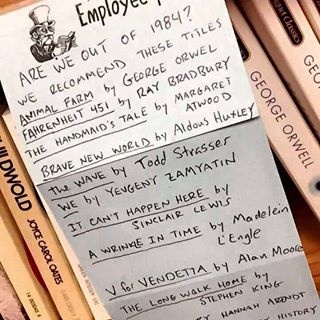 Employee
ARE WE OUT OF 1984?
WE RECOMMEND THESE TITLES
ANIMAL FARM by GEORGE ORWEL
FAHRENHEIT 451 by RAY BRADBURY
THE HANDMAID'S TALE by MARGARET
ATWOOD
BRAVE NEW WORLD by Aldous Huxley
THE WAVE by Todd Strasser
WE by YEVGENY ZAMYATIN
IT CAN'T HAPPEN HERE by
SINCLAIR LEWIS
A WRINKLE IN TIME by Madelein
L'Engle
V for VENDETTA by Alan Moore
THE LONG WALK HOME by
STEPHEN KING
BY HANNAH ARENDT
HISTORY
JOYCE CAROL OATES
GEORGE ORWELL
GEORGE ORWELL
Classics